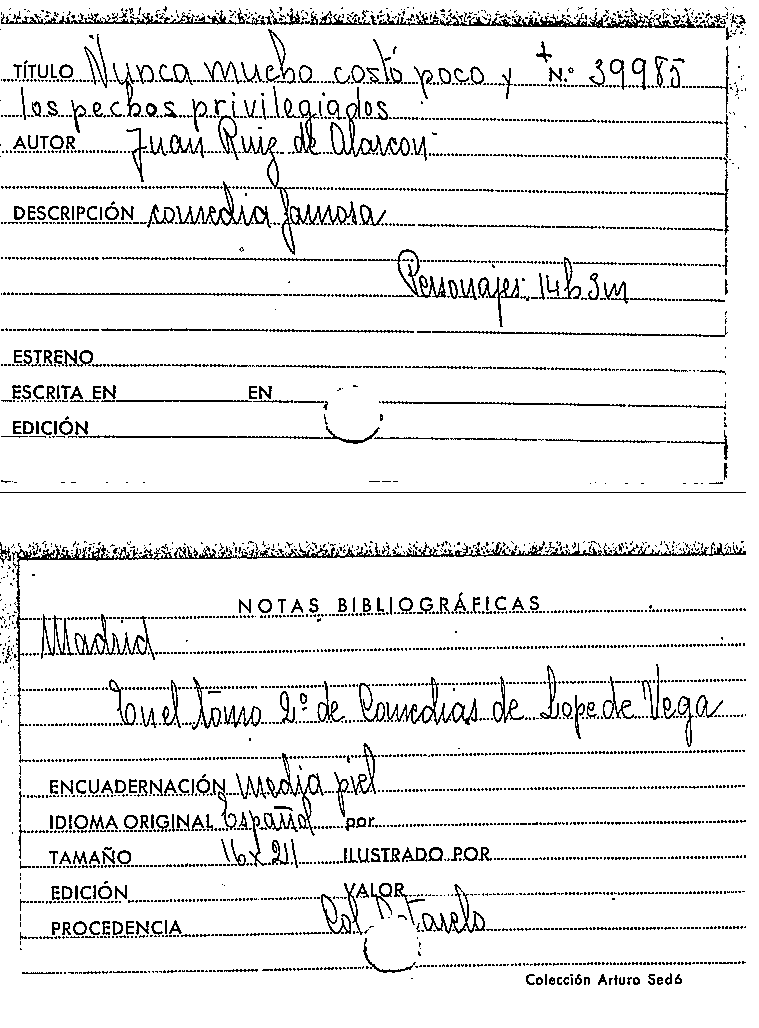 TÍTULO Nunca mucho costó poco y + N.º 39985
los pechos privilegiados
AUTOR Juan Ruiz de Alarcon
DESCRIPCIÓN comedia famosa
Personajes: 14 h 3 m
ESTRENO
ESCRITA EN EN
EDICIÓN
NOTAS BIBLIOGRÁFICAS
Madrid
En el tomo 2º de Comedias de Lope de Vega
ENCUADERNACIÓN media piel
IDIOMA ORIGINAL Español por
TAMAÑO 16 x 211 ILUSTRADO POR
EDICIÓN VALOR
PROCEDENCIA Col
Colección Arturo Sedó